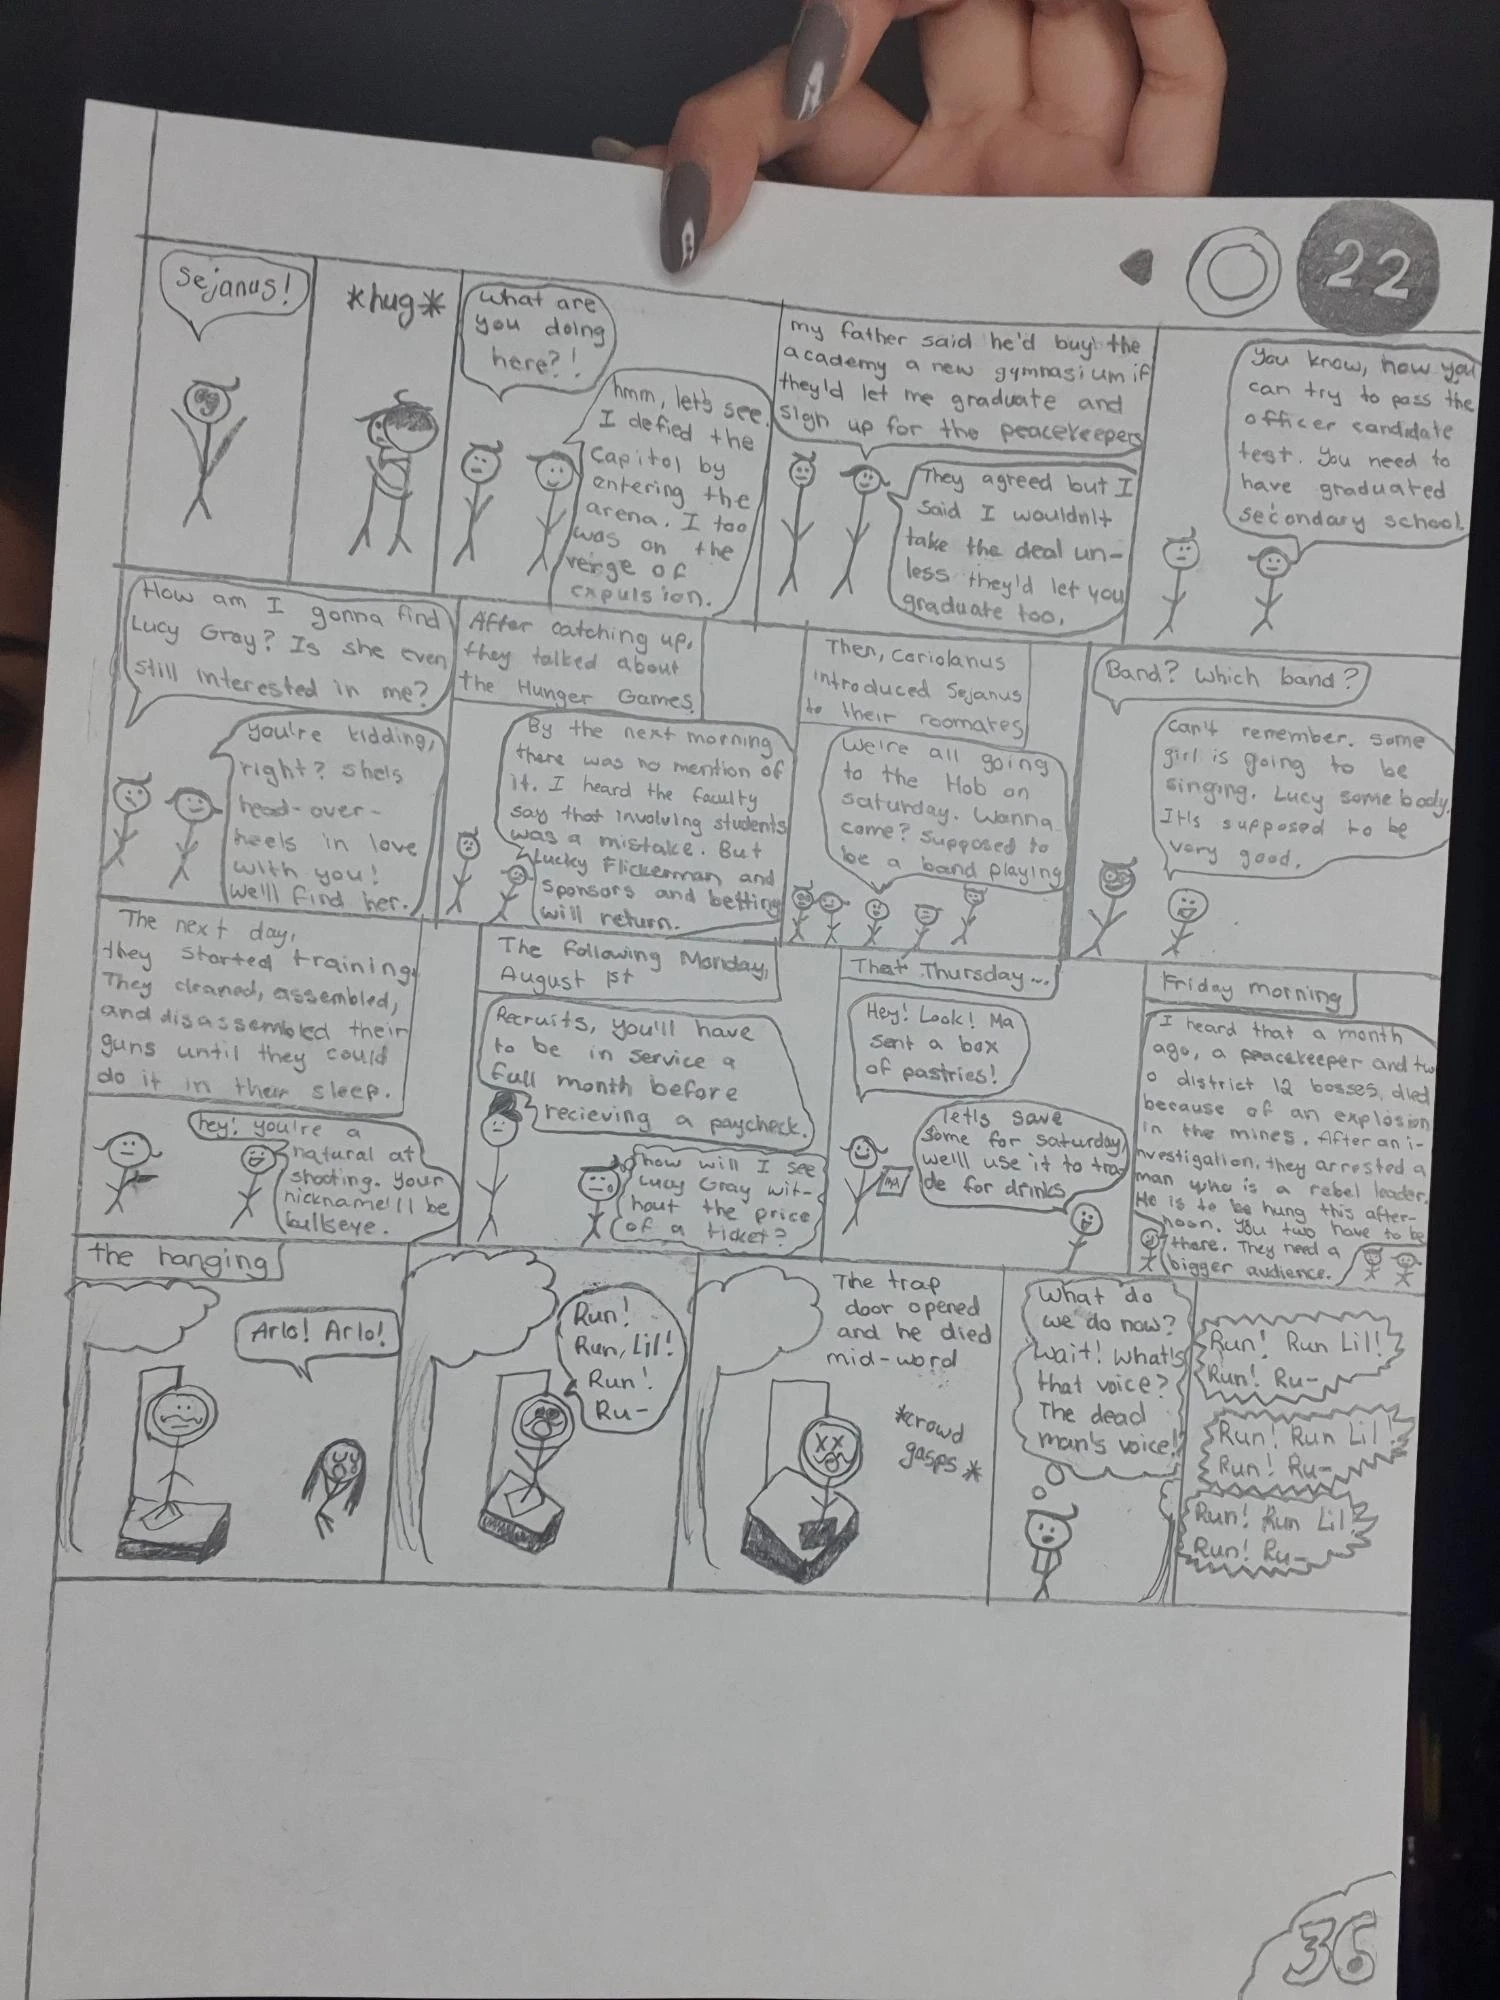 22
Sejanus!
*hug*
What are
you doing
here?!
hmm, let's see.
I defied the
Capitol by
entering the
arena. I too
was on the
verge of
expulsion.
my father said he'd buy the
academy a new gymnasium if
they'd let me graduate and
sign up for the peacekeepers
They agreed but I
said I wouldn't
take the deal un-
less they'd let you
graduate too.
You know, how you
can try to pass the
officer candidate
test. You need to
have graduated
secondary school.
How am I gonna find
Lucy Gray? Is she even
still interested in me?
you're kidding,
right? she's
head-over-
heels in love
with you!
We'll find her.
After catching up,
they talked about
the Hunger Games.
By the next morning
there was no mention of
it. I heard the faculty
say that involving students
was a mistake. But
Lucky Flickerman and
sponsors and betting
will return.
Then, Coriolanus
introduced Sejanus
to their roomates
We're all going
to the Hob on
saturday. Wanna
come? Supposed to
be a band playing
Band? Which band?
Can't remember. Some
girl is going to be
singing. Lucy somebody.
It's supposed to be
very good.
The next day,
they started training.
They cleaned, assembled,
and disassembled their
guns until they could
do it in their sleep.
hey! you're a
natural at
shooting. Your
nickname'll be
bullseye.
The following Monday,
August 1st
Recruits, you'll have
to be in service a
full month before
recieving a paycheck.
how will I see
Lucy Gray wit-
hout the price
of a ticket?
That Thursday...
Hey! Look! Ma
sent a box
of pastries!
let's save
some for saturday,
we'll use it to tra-
de for drinks
MA
Friday morning
I heard that a month
ago, a peacekeeper and tw
o district 12 bosses, died
because of an explosion
in the mines. After an i-
nvestigation, they arrested a
man who is a rebel leader.
He is to be hung this after-
noon. You two have to be
there. They need a
bigger audience.
the hanging
Arlo! Arlo!
Run!
Run, Lil!
Run!
Ru-
The trap
door opened
and he died
mid-word
*crowd
gasps*
What do
we do now?
Wait! What's
that voice?
The dead
man's voice!
Run! Run Lil!
Run! Ru-
Run! Run Lil!
Run! Ru-
Run! Run Lil!
Run! Ru-
36